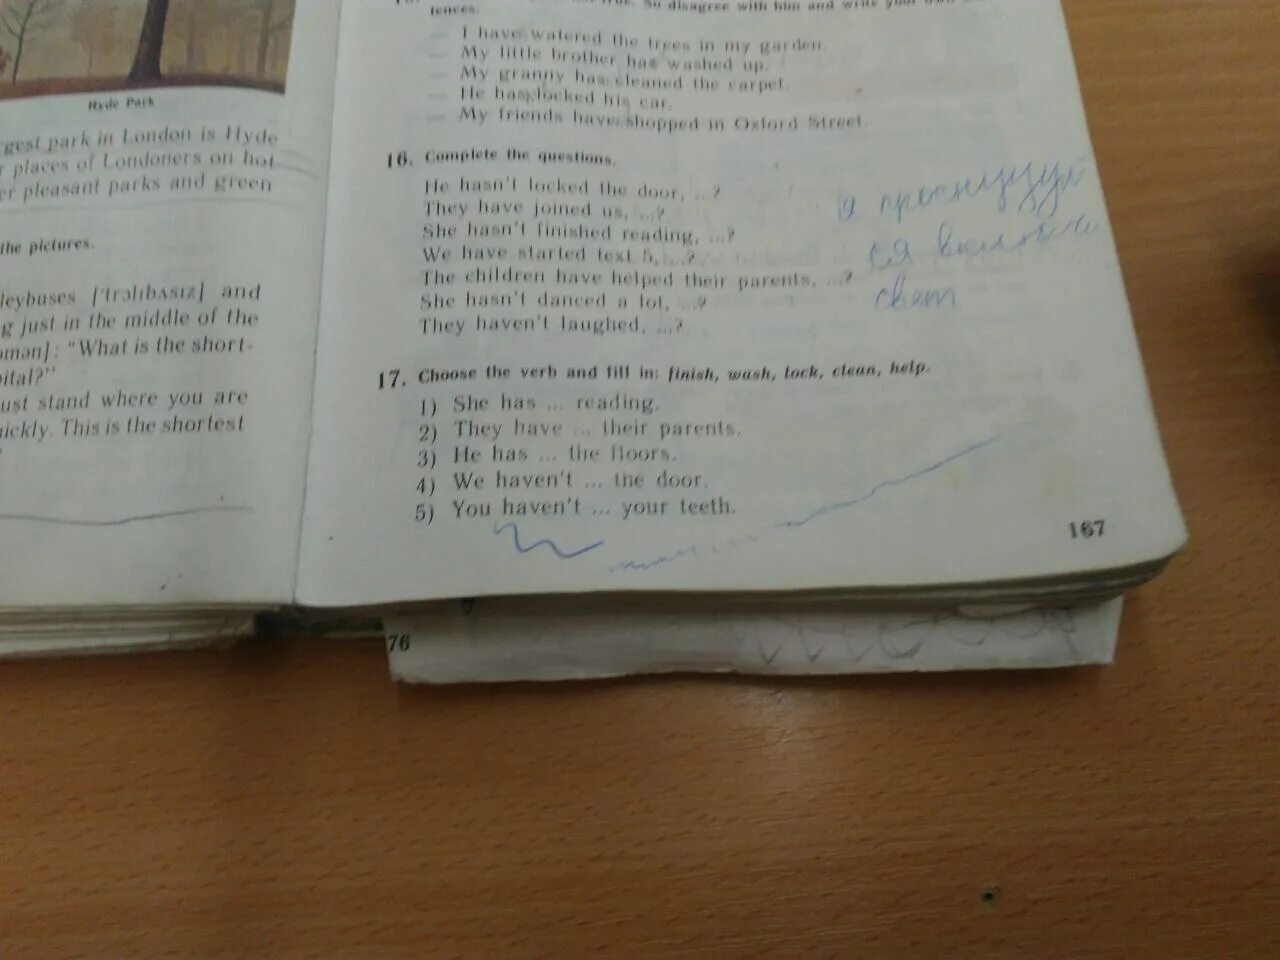 Hyde Park
rgest park in London is Hyde
r places of Londoners on hot
er pleasant parks and green
the pictures.
leybuses ['trɔlıbʌsız] and
g just in the middle of the
omən]: "What is the short-
pital?"
ust stand where you are
uickly. This is the shortest
true. So disagree with him and write your own
tences.
— I have watered the trees in my garden.
— My little brother has washed up.
— My granny has cleaned the carpet.
— He has locked his car.
— My friends have shopped in Oxford Street.
16. Complete the questions.
He hasn't locked the door, ...?
They have joined us, ...?
She hasn't finished reading, ...?
We have started text 5, ...?
The children have helped their parents, ...?
She hasn't danced a lot, ...?
They haven't laughed, ...?
я
ся
свет
17. Choose the verb and fill in: finish, wash, lock, clean, help.
1) She has ... reading.
2) They have ... their parents.
3) He has ... the floors.
4) We haven't ... the door.
5) You haven't ... your teeth.
167
76